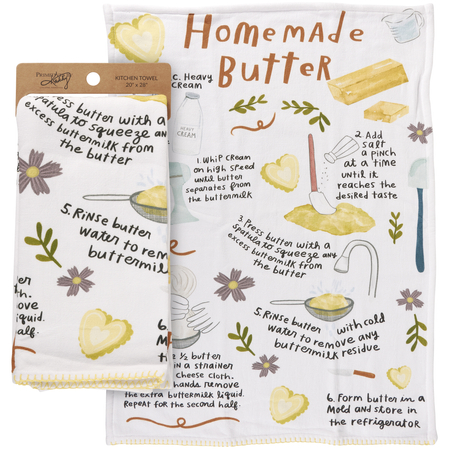 Homemade
Butter
Primitives by Kathy
KITCHEN TOWEL
20" x 28"
Press butter with a
spatula to squeeze and
excess buttermilk from
the butter
5. Rinse butter
water to remo
buttermil
6.
C. Heavy
Cream
HEAVY
CREAM
1. Whip cream
on high speed
until butter
separates from
the buttermilk
2. Add
salt
a pinch
at a time
until it
reaches the
desired taste
3. Press butter with a
spatula to squeeze any
excess buttermilk from
the butter
5. Rinse butter with cold
water to remove any
buttermilk residue
e ½ butter
in a strainer
cheese cloth.
hands remove
the extra buttermilk liquid.
Repeat for the second half.
6. Form butter in a
mold and store in
the refrigerator